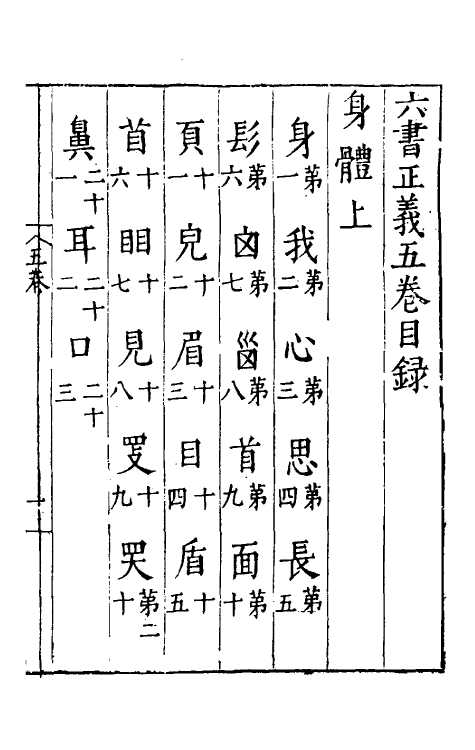 六書正義五卷目録
身體上
身第一 我第二 心第三 思第四 長第五
髟第六 囟第七 甾第八 首第九 面第十
頁十一 皃十二 眉十三 目十四 盾十五
首十六 䀠十七 見十八 十九 第二十
鼻二十一 耳二十二 口二十三
五卷 一